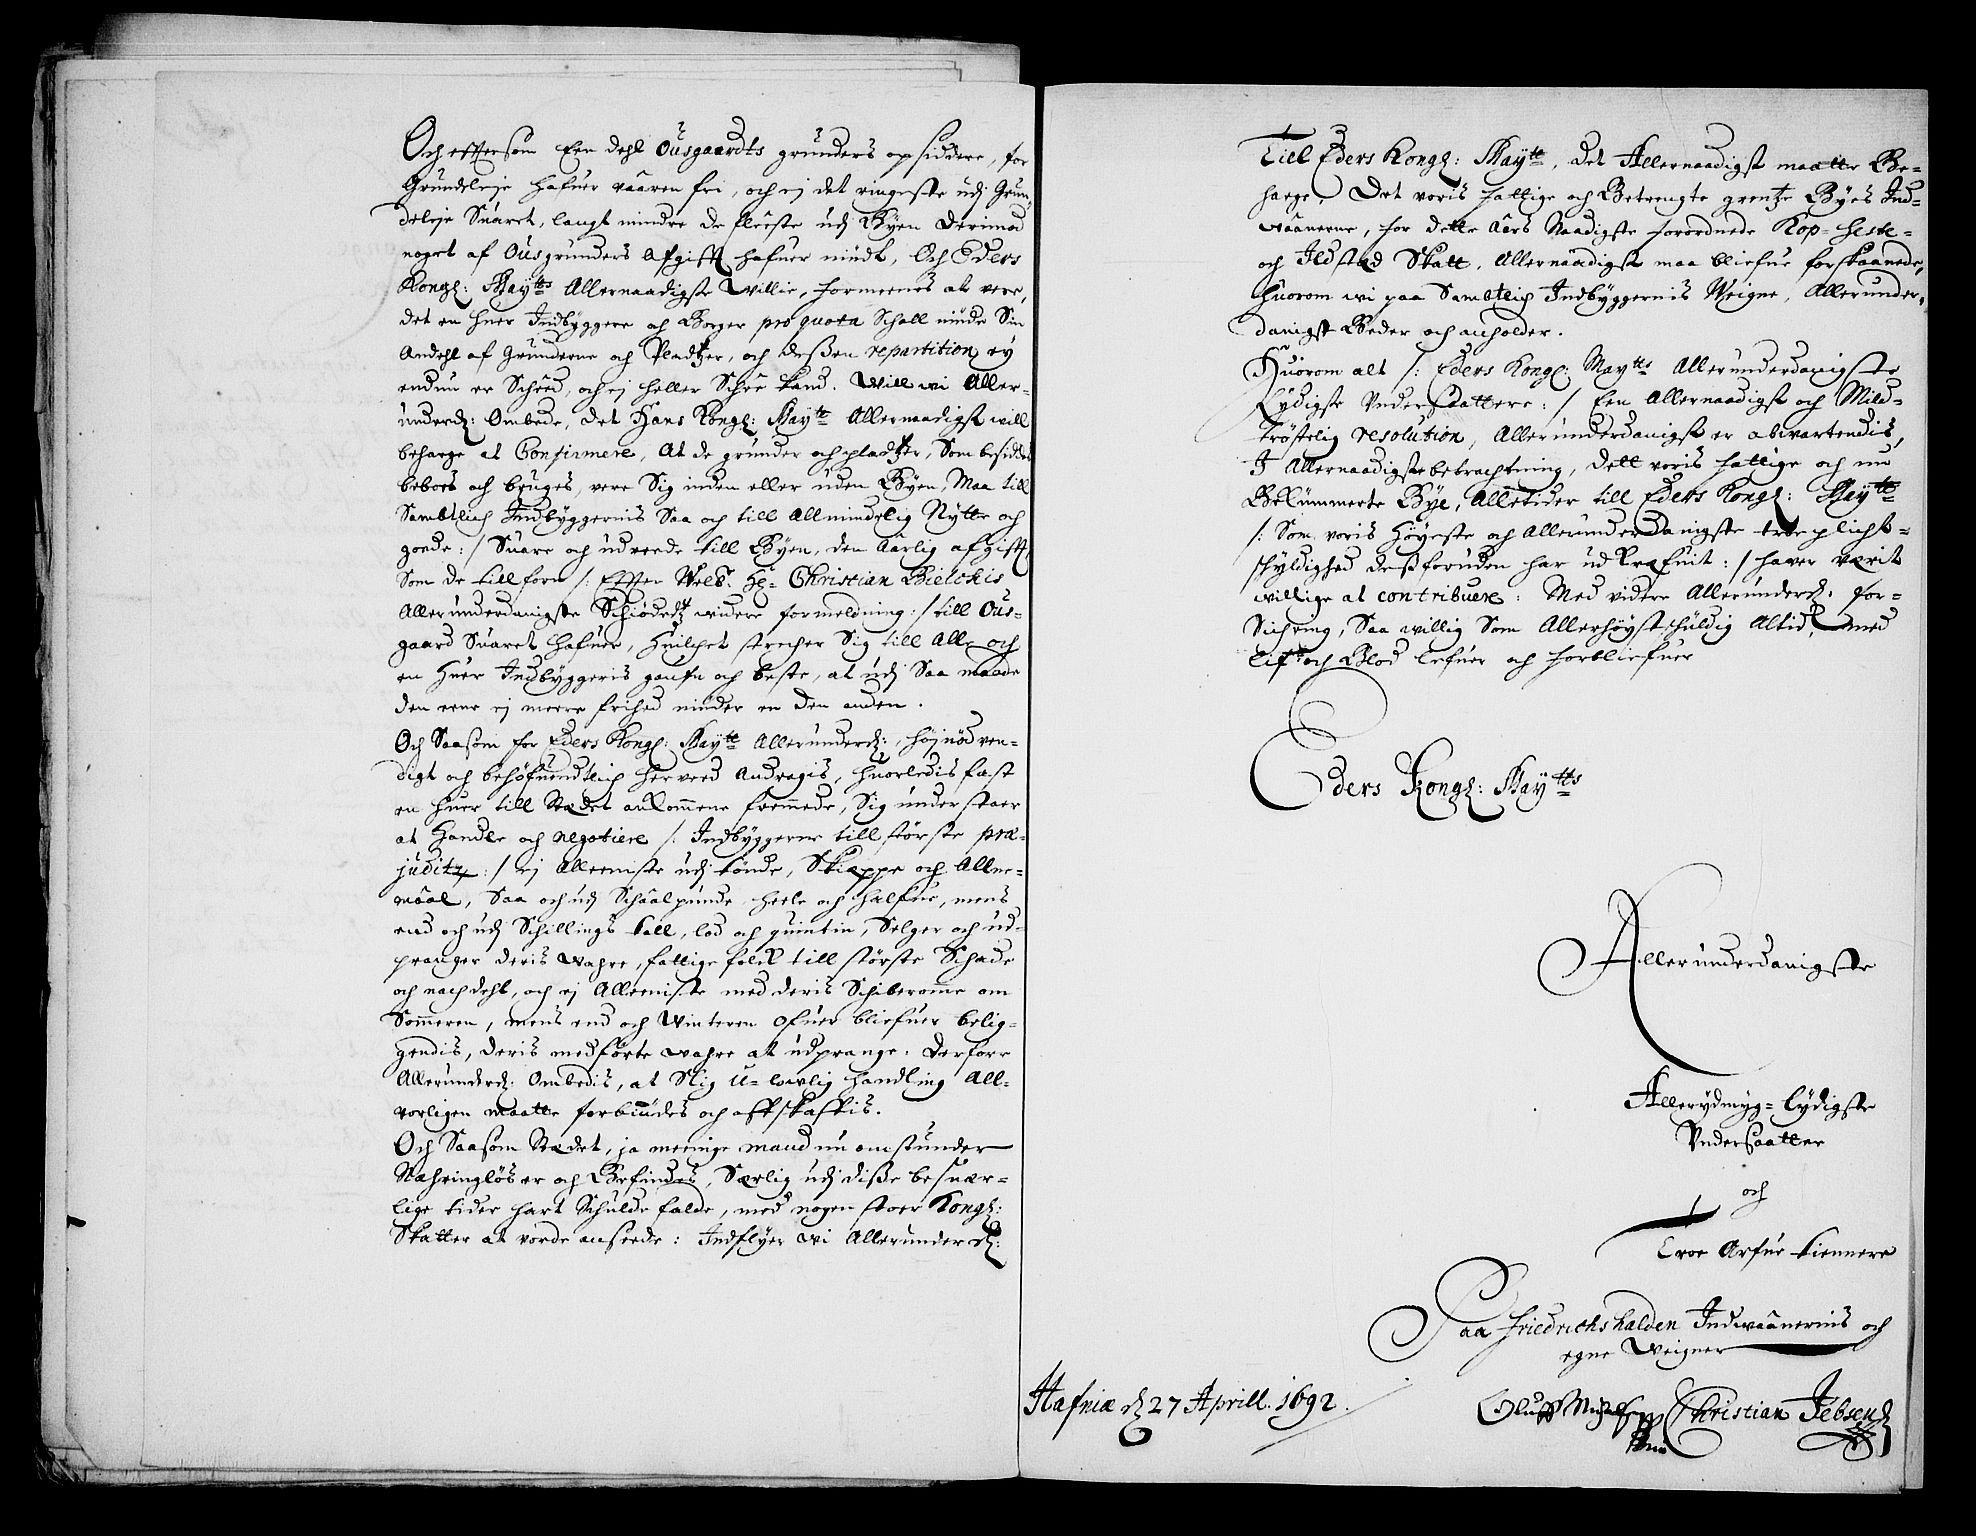 Och efftersom Een dehl Ousgaardts grunders opsiddere, for
Grundeleje hafuer vaaren fri, och ej det ringeste udj Grun-
deleje Suaret, langt mindre de fleeste udj Byen derimod
noget af Ousgrunders Afgifft hafuer niudt, Och Eders
Kongl: Maytts Allernaadigste Willie, formeenes at vere,
det en huer Indbyggere och Borger pro quota Schall niude Sin
Andehl af Grunderne och Pladtzer, och deßen repartition ey
endnu er Scheed, och ej heller Schee kand. Will wi Aller-
underd: Ombede, det Hans Kongl: Maytt Allernaadigst will
behage at Confirmere, At de grunder och pladtzer, Som besiddes
beboes och bruges, vere Sig inden eller uden Byen, Maa till
Sambtlich Indbyggernis Saa och till Allmindelig Nytte och
goede :/ Suare och udreede till Byen, den Aarlig afgifft,
Som de tillforn /: Effter Welb. Hr= Christian Bielchis
Allerunderdanigste Schiøde widere formeldning :/ till Ous-
gaard Suaret hafuer, huilchet strecher Sig till All och
en huer Indbyggeris gaufn och beste, at udj Saa maade
den eene ej meere frihed niuder en den anden.
Och Saasom for Eders Kongl: Maytt Allerunderd:, højnødven-
digt och behøfuendtlich herved Andragis, huorledis fast
en huer till Stædet ankommene fremmede, Sig understaaer
at Handle och negotiere /: Indbyggerne till største præ-
juditz :/ ej Alleeniste udj tønde, Skieppe och Allne-
maal, Saa och udj Schaalpunde heele och halfue, mens
end och udj Schillings tall, lod och quintin, Selger och ud-
pranger deris wahre, fattige folch till største Schade
och nachdehl, och ej Alleeniste med deris Schiberomme om
Sommeren, mens end och Winteren ofuer bliefuer belig-
gendis, deris medførte wahre at udprange. Derfore
Allerunderd: Ombedis, at Slig U-lowlig handling All-
vorligen maatte forbiudes och affskaffis.
Och Saasom Stædet, ja meenige mand nu omstunder
Næhringløs er och Befindes, Særlig udj diße besuær-
lige tider hart Schulde falde, med nogen stoer Kongl:
Skatter at vorde anseede: Indflyer wi Allerunderd:
Till Eders Kongl: Maytt, det Allernaadigst maatte Be-
hage, Det voris fattige och Betrengte grentze Byes Ind-
vaanerne, for dette Aars Naadigste forordnede Kop- heste-
och Ildsted Skatt, Allernaadigst maa bliefue forskaanede,
huorom wi paa Sambtlich Indbyggernis Weigne, Allerunder-
danigst Beder och anholder.
Huorom alt /: Eders Kongl: Maytts Allerunderdanigste
Lydigste Undersaattere :/ Een Allernaadigst och Mild-
trøstelig resolution, Allerunderdanigst er abwartendis,
I Allernaadigste betrachtning, dett voris fattige och nu
Bekummerte Bye, Alletider till Eders Kongl: Maytt
/: Som voris Høyeste och Allerunderdanigste troe plicht-
schyldighed deßforuden har udkræfuit :/ haver værit
willige at contribuere: Med videre Allerunderd: for-
Sichring, Saa willig Som Allerhøyst schuldig Altid, med
Lif och Blod lefuer och forbliefuer
Eders Kongl: Maytts
Allerunderdanigste
Allerydmyg= Lydigste
Undersaatter
och
Troe Arfue tiennere
Paa Friedrichshalden Indwaanernis och
egne Weigner
Hafniæ d 27 Aprill. 1692.
Oluff Christian Jebsen